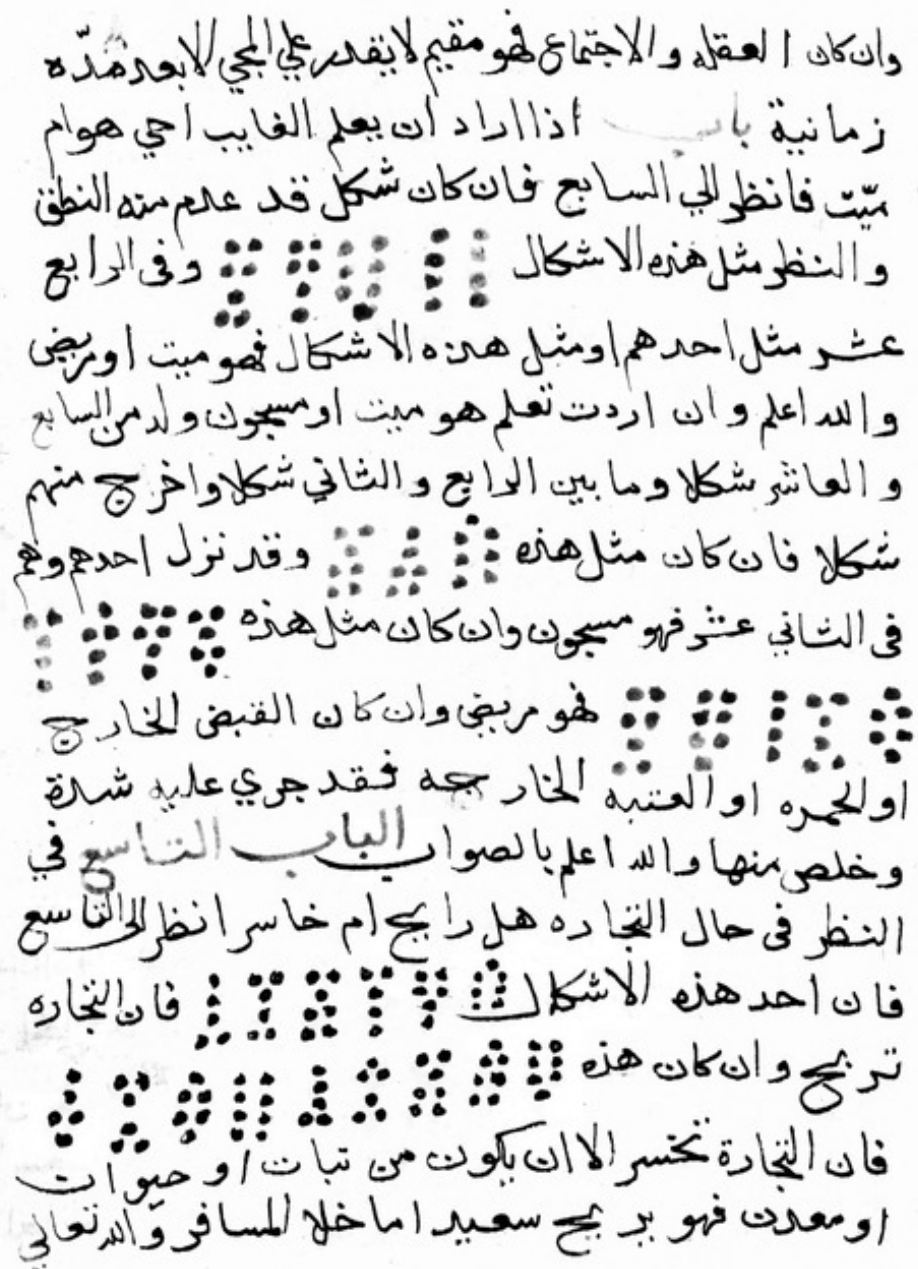 وان كان العقله والاجتماع فهو مقيم لا يقدر علي المجي الا بعد مدّه
زمانية باب اذا اراد ان يعلم الغايب احي هو ام
ميّت فانظر الي السابع فان كان شكل قد عدم منه النطق
والنظر مثل هذه الاشكال وفي الرابع
عشر مثل احدهم او مثل هذه الاشكال فهو ميت او مريض
والله اعلم وان اردت تعلم هو ميت او مسجون ولد من السابع
والعاشر شكلا وما بين الرابع والثاني شكلا واخرج منهم
شكلا فان كان مثل هذه وقد نزل احدهم وهم
في الثاني عشر فهو مسجون وان كان مثل هذه
فهو مريض وان كان القبض الخارج
او الحمره او العتبه الخارجه فقد جري عليه شدة
وخلص منها والله اعلم بالصواب الباب التاسع في
النظر في حال التجاره هل رابح ام خاسر انظر الى التاسع
فان احد هذه الاشكال فان التجاره
تربح وان كان هذه
فان التجارة تخسر الا ان يكون من نبات او حيوات
او معدن فهو يربح سعيد اما خلا المسافر والله تعالي